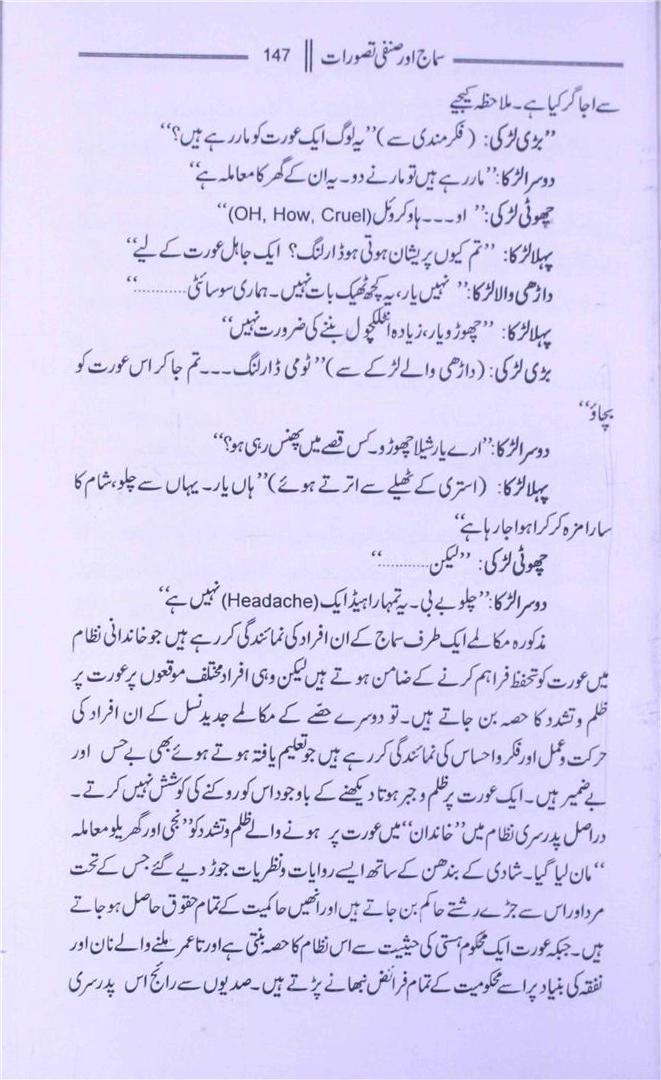 سماج اور صنفی تصورات || 147
سے اجاگر کیا ہے۔ ملاحظہ کیجیے
”بڑی لڑکی: (فکر مندی سے) ”یہ لوگ ایک عورت کو مار رہے ہیں؟“
دوسرا لڑکا: ”مار رہے ہیں تو مارنے دو۔ یہ ان کے گھر کا معاملہ ہے“
چھوٹی لڑکی: ”او۔۔۔ ہاؤ کروئل (OH, How, Cruel)“
پہلا لڑکا: ”تم کیوں پریشان ہوتی ہو ڈارلنگ؟ ایک جاہل عورت کے لیے“
داڑھی والا لڑکا: ”نہیں یار، یہ کچھ ٹھیک بات نہیں۔ ہماری سوسائٹی..........“
پہلا لڑکا: ”چھوڑو یار، زیادہ انٹلکچول بننے کی ضرورت نہیں“
بڑی لڑکی: (داڑھی والے لڑکے سے) ”ٹومی ڈارلنگ۔۔۔ تم جا کر اس عورت کو
بچاؤ“
دوسرا لڑکا: ”ارے یار شیلا چھوڑو۔ کس قصے میں پھنس رہی ہو؟“
پہلا لڑکا: (استری کے ٹھیلے سے اترتے ہوئے) ”ہاں یار۔ یہاں سے چلو، شام کا
سارا مزہ کرکرا ہوا جا رہا ہے“
چھوٹی لڑکی: ”لیکن..........“
دوسرا لڑکا: ”چلو بے بی۔ یہ تمہارا ہیڈ ایک (Headache) نہیں ہے“
مذکورہ مکالمے ایک طرف سماج کے ان افراد کی نمائندگی کر رہے ہیں جو خاندانی نظام
میں عورت کو تحفظ فراہم کرنے کے ضامن ہوتے ہیں لیکن وہی افراد مختلف موقعوں پر عورت پر
ظلم و تشدد کا حصہ بن جاتے ہیں۔ تو دوسرے حصّے کے مکالمے جدید نسل کے ان افراد کی
حرکت و عمل اور فکر و احساس کی نمائندگی کر رہے ہیں جو تعلیم یافتہ ہوتے ہوئے بھی بے حس اور
بے ضمیر ہیں۔ ایک عورت پر ظلم و جبر ہوتا دیکھنے کے باوجود اس کو روکنے کی کوشش نہیں کرتے۔
دراصل پدرسری نظام میں ”خاندان“ میں عورت پر ہونے والے ظلم و تشدد کو ”نجی اور گھریلو معاملہ
“ مان لیا گیا۔ شادی کے بندھن کے ساتھ ایسے روایات و نظریات جوڑ دیے گئے جس کے تحت
مرد اور اس سے جڑے رشتے حاکم بن جاتے ہیں اور انھیں حاکمیت کے تمام حقوق حاصل ہو جاتے
ہیں۔ جبکہ عورت ایک محکوم ہستی کی حیثیت سے اس نظام کا حصہ بنتی ہے اور تاعمر ملنے والے نان اور
نفقہ کی بنیاد پر اسے محکومیت کے تمام فرائض نبھانے پڑتے ہیں۔ صدیوں سے رائج اس پدرسری